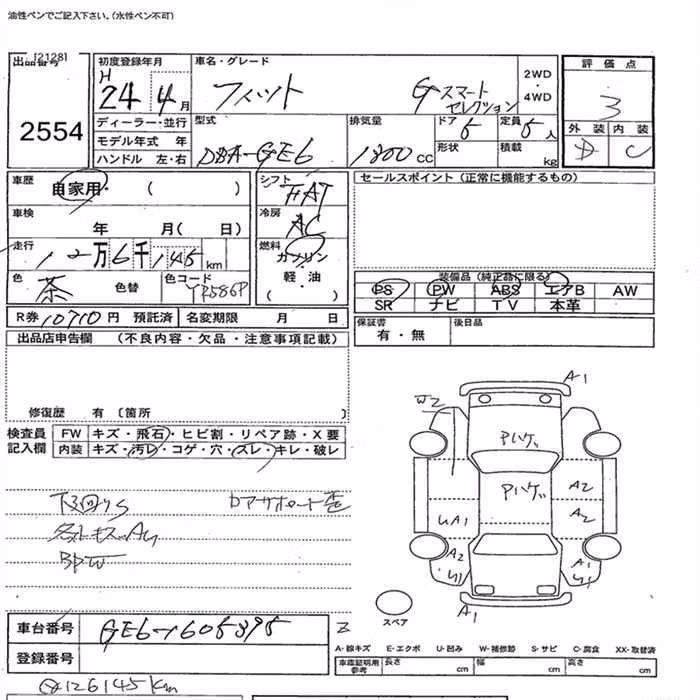 油性ペンでご記入下さい。(水性ペン不可)
出品番号 [2128]
2554
初度登録年月
H 24 4 月
ディーラー・並行
モデル年式 年
ハンドル 左・右
車名・グレード
フィット G スマートセレクション
2WD ・ 4WD
型式
DBA-GE6
排気量
1300 CC
ドア 5
形状
定員 5 人
積載 kg
評価点
3
外装 内装
D C
車歴 自家用・( )
車検 年 月( 日)
走行 12万6千145 km
色 茶 色替 色コード YR586P
R券 10710 円 預託済 名変期限 月 日
シフト FAT
冷房 AC
燃料 ガソリン・軽・油 ( )
セールスポイント (正常に機能するもの)
装備品 (純正品に限る)
PS PW ABS エアB AW
SR ナビ TV 本革
保証書 有・無 後日品
出品店申告欄 (不良内容・欠品・注意事項記載)
修復歴 有〔箇所 〕
検査員記入欄
FW キズ・飛石・ヒビ割・リペア跡・X要
内装 キズ・汚レ・コゲ・穴・スレ・キレ・破レ
下回りS
BPW
車台番号 GE6-1605395
登録番号
126145km
A1
W2
Pハゲ
Pハゲ
A2
A2
UA1
A2
U1
A1
U1
A1
スペア
A-線キズ E-エクボ U-凹み W-補修跡 S-サビ C-腐食 XX-取替済
車庫証明用参考 長さ cm 幅 cm 高さ cm